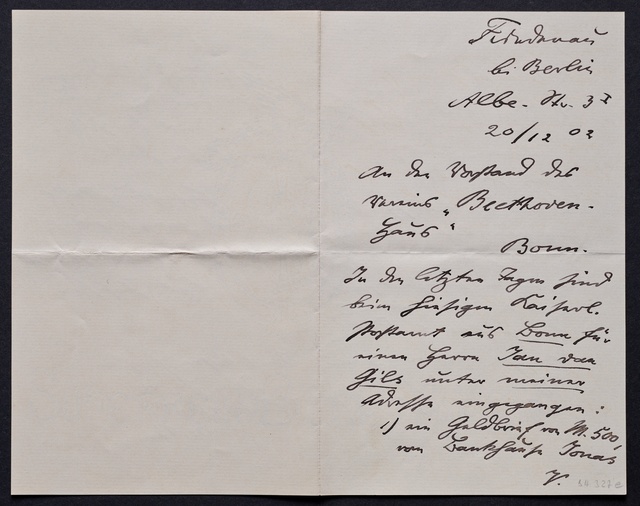 Friedenau
bei Berlin
Albe-Str. 3 I
20/12 02
An den Vorstand des
Vereins „Beethoven-
Haus“
Bonn.
In den letzten Tagen sind
beim hiesigen Kaiserl.
Postamt aus Bonn für
einen Herrn Jan van
Gils unter meiner
Adresse eingegangen:
1) ein Geldbrief von M. 500,
vom Bankhause Jonas
V.